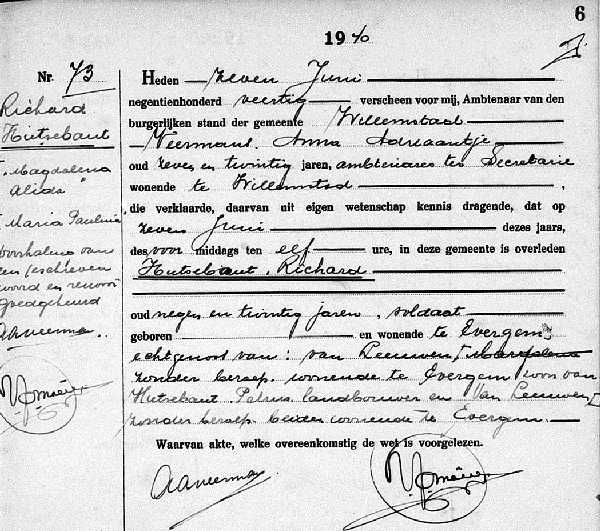 6
1940
Nr. 73
Richard
Hutsebaut
"Magdalena
Alida"
"Maria Paulina"
doorhalen van
een geschreven
woord en
goedgekeurd
Heden zeven Juni
negentienhonderd veertig verscheen voor mij, Ambtenaar van den
burgerlijken stand der gemeente Willemstad
Veermans, Anna Adriaantje,
oud zeven en twintig jaren, ambtenares ter Secretarie
wonende te Willemstad ,
die verklaarde, daarvan uit eigen wetenschap kennis dragende, dat op
zeven Juni dezes jaars,
des voor middags ten elf ure, in deze gemeente is overleden
Hutsebaut, Richard
oud negen en twintig jaren, soldaat
geboren en wonende te Evergem,
echtgenoot van: van Leeuwen,
zonder beroep, wonende te Evergem, zoon van
Hutsebaut, Petrus landbouwer en Van Leeuwen,
zonder beroep beiden wonende te Evergem.
Waarvan akte, welke overeenkomstig de wet is voorgelezen.